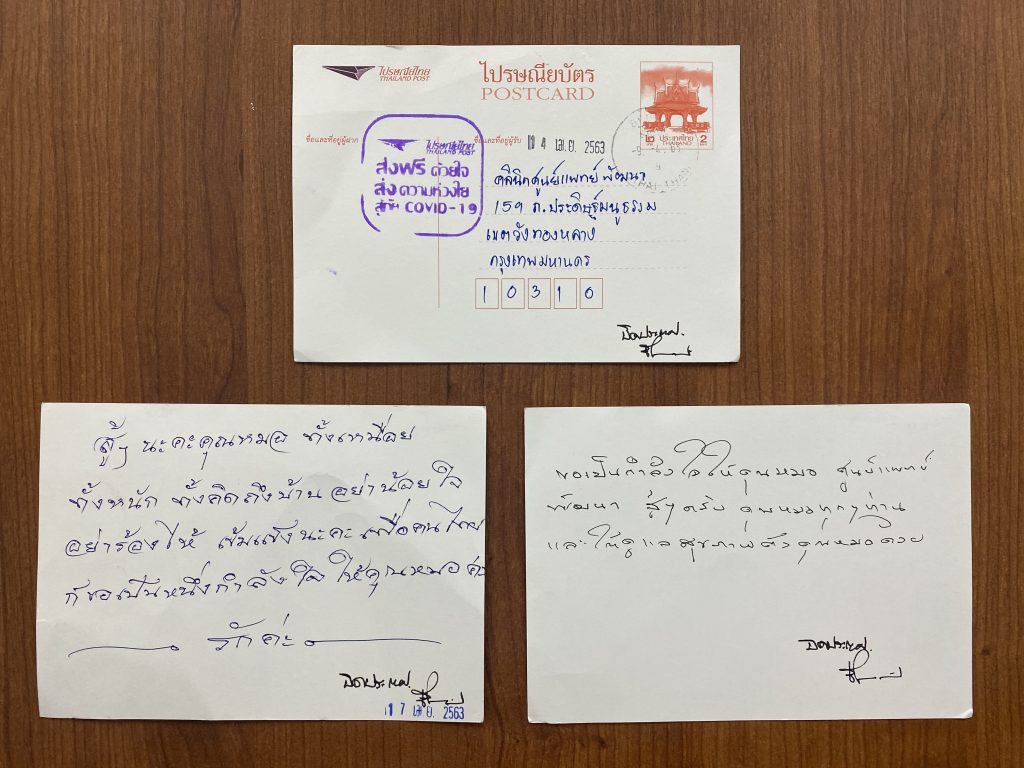 ไปรษณีย์ไทย
THAILAND POST
ไปรษณียบัตร
POSTCARD
๒ บาท
ประเทศไทย
THAILAND
2
ชื่อและที่อยู่ผู้ฝาก
ชื่อและที่อยู่ผู้รับ
1 4 เม.ย. 2563
-9. 4. 63
ไปรษณีย์ไทย
THAILAND POST
ส่งฟรี ด้วยใจ
ส่ง ความห่วงใย
สู้ภัย COVID-19
คลินิกศูนย์แพทย์พัฒนา
159 ถ.ประดิษฐ์มนูธรรม
เขตวังทองหลาง
กรุงเทพมหานคร
1 0 3 1 0
สู้ๆ นะคะคุณหมอ ทั้งเหนื่อย
ทั้งหนัก ทั้งคิดถึงบ้าน อย่าน้อยใจ
อย่าร้องไห้ เข้มแข็งนะคะ เพื่อคนไทย
ก็ขอเป็นหนึ่งกำลังใจ ให้คุณหมอ ค่ะ
รักค่ะ
1 7 เม.ย. 2563
ขอเป็นกำลังใจให้คุณหมอ ศูนย์แพทย์
พัฒนา สู้ๆ ครับ คุณหมอทุกๆท่าน
และให้ดูแลสุขภาพตัวคุณหมอด้วย